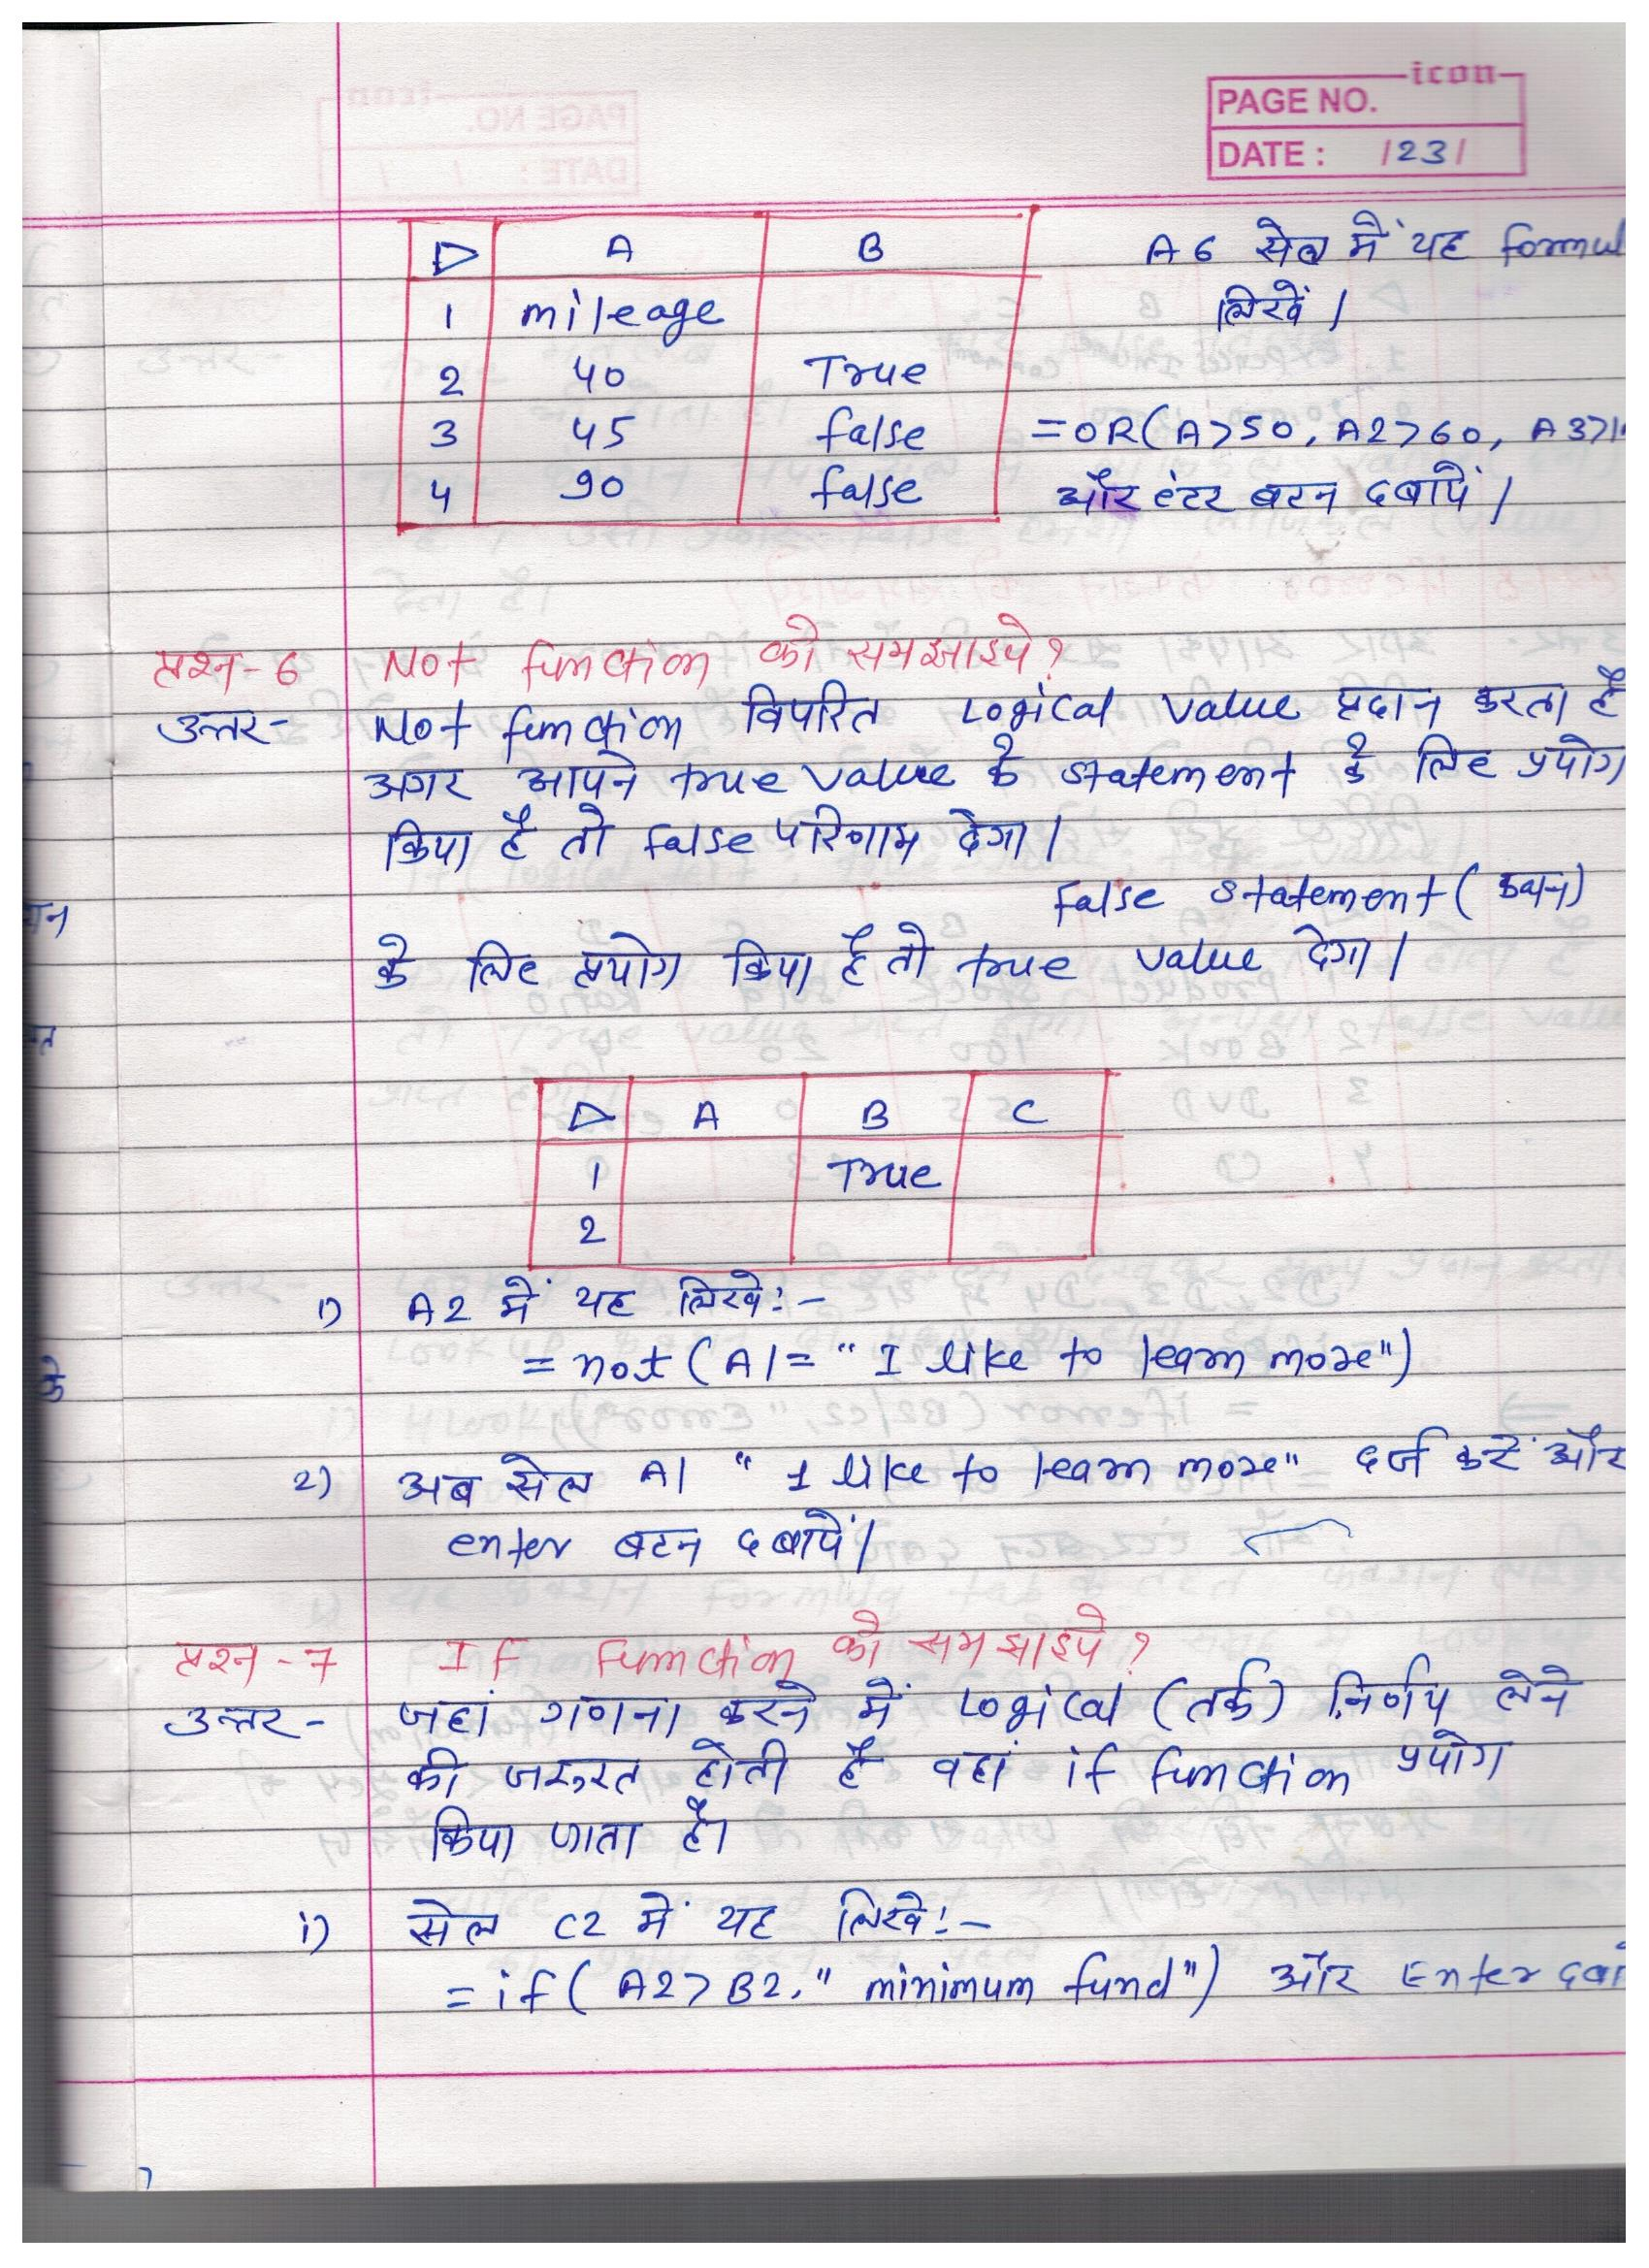 icon
PAGE NO.
DATE : /23/
A B
1 mileage
2 40 True
3 45 false
4 90 false
A6 सेल में यह formul
लिखें।
=OR(A>50, A2>60, A3>1
और एंटर बटन दबायें।
प्रश्न-6 Not function को समझाइये?
उत्तर- Not function विपरित Logical value प्रदान करता है
अगर आपने true value के statement के लिए प्रयोग
किया है तो false परिणाम देगा।
False statement (कथन)
के लिए प्रयोग किया है तो true value देगा।
A B C
1 True
2
1) A2 में यह लिखे:-
= not (A1= "I like to learn more")
2) अब सेल A1 "I like to learn more" दर्ज करें और
enter बटन दबायें।
प्रश्न-7 If function को समझाइये?
उत्तर- जहां गणना करने में Logical (तर्क) निर्णय लेने
की जरूरत होती है वहां if function प्रयोग
किया जाता है।
i) सेल C2 में यह लिखे:-
= if( A2>B2, "minimum fund") और Enter